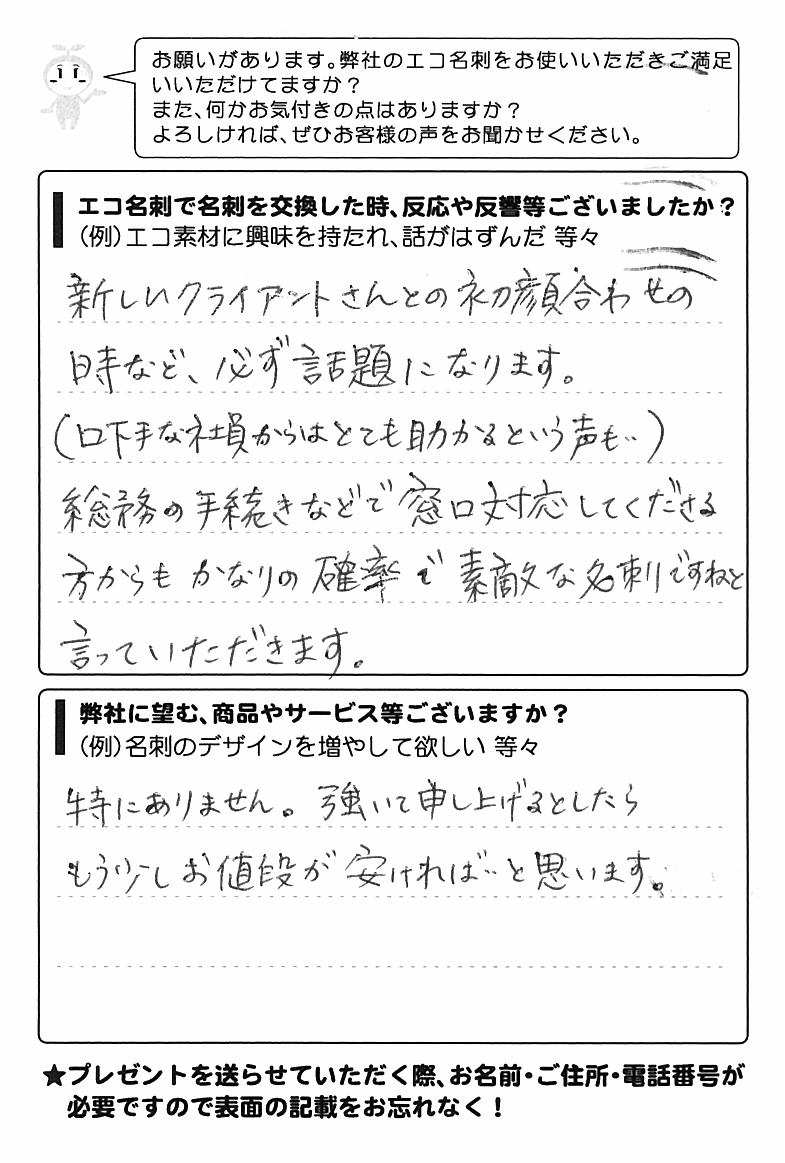 お願いがあります。弊社のエコ名刺をお使いいただきご満足
いいただけてますか？
また、何かお気付きの点はありますか？
よろしければ、ぜひお客様の声をお聞かせください。
エコ名刺で名刺を交換した時、反応や反響等ございましたか？
（例）エコ素材に興味を持たれ、話がはずんだ 等々
新しいクライアントさんとの初顔合わせの
時など、必ず話題になります。
（口下手な社員からはとても助かるという声も‥）
総務の手続きなどで窓口対応してくださる
方からも かなりの確率で素敵な名刺ですねと
言っていただきます。
弊社に望む、商品やサービス等ございますか？
（例）名刺のデザインを増やして欲しい 等々
特にありません。強いて申し上げるとしたら
もう少しお値段が安ければ‥と思います。
★プレゼントを送らせていただく際、お名前・ご住所・電話番号が
必要ですので表面の記載をお忘れなく！